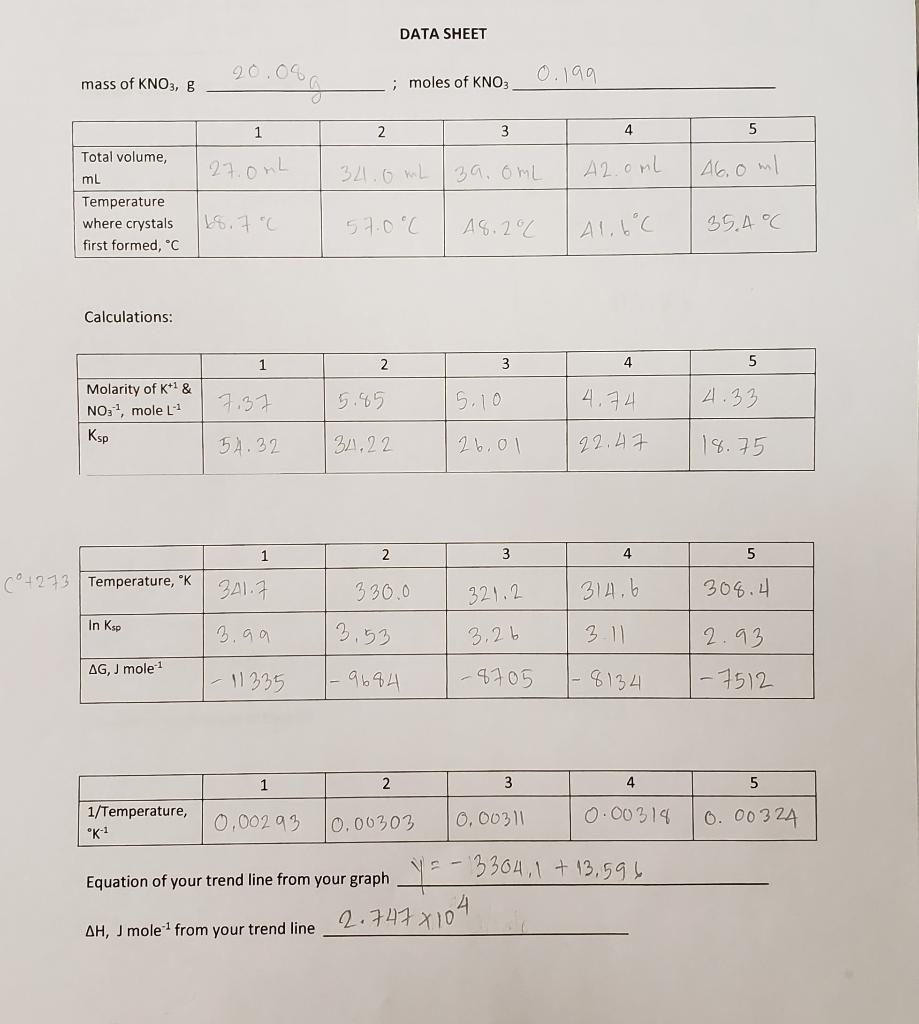 DATA SHEET
mass of KNO₃, g 20.08g ; moles of KNO₃ 0.199
1 2 3 4 5
Total volume, mL 27.0 mL 34.0 mL 39.0 mL 42.0 ml 46.0 ml
Temperature where crystals first formed, °C 68.7 °C 57.0 °C 48.2 °C 41.6 °C 35.4 °C
Calculations:
1 2 3 4 5
Molarity of K⁺¹ & NO₃⁻¹, mole L⁻¹ 7.37 5.85 5.10 4.74 4.33
Ksp 54.32 34.22 26.01 22.47 18.75
1 2 3 4 5
C°+273 Temperature, °K 341.7 330.0 321.2 314.6 308.4
ln Ksp 3.99 3.53 3.26 3.11 2.93
ΔG, J mole⁻¹ -11335 -9684 -8705 -8134 -7512
1 2 3 4 5
1/Temperature, °K⁻¹ 0.00293 0.00303 0.00311 0.00318 0.00324
Equation of your trend line from your graph y = -3304.1 + 13.596
ΔH, J mole⁻¹ from your trend line 2.747 x10⁴